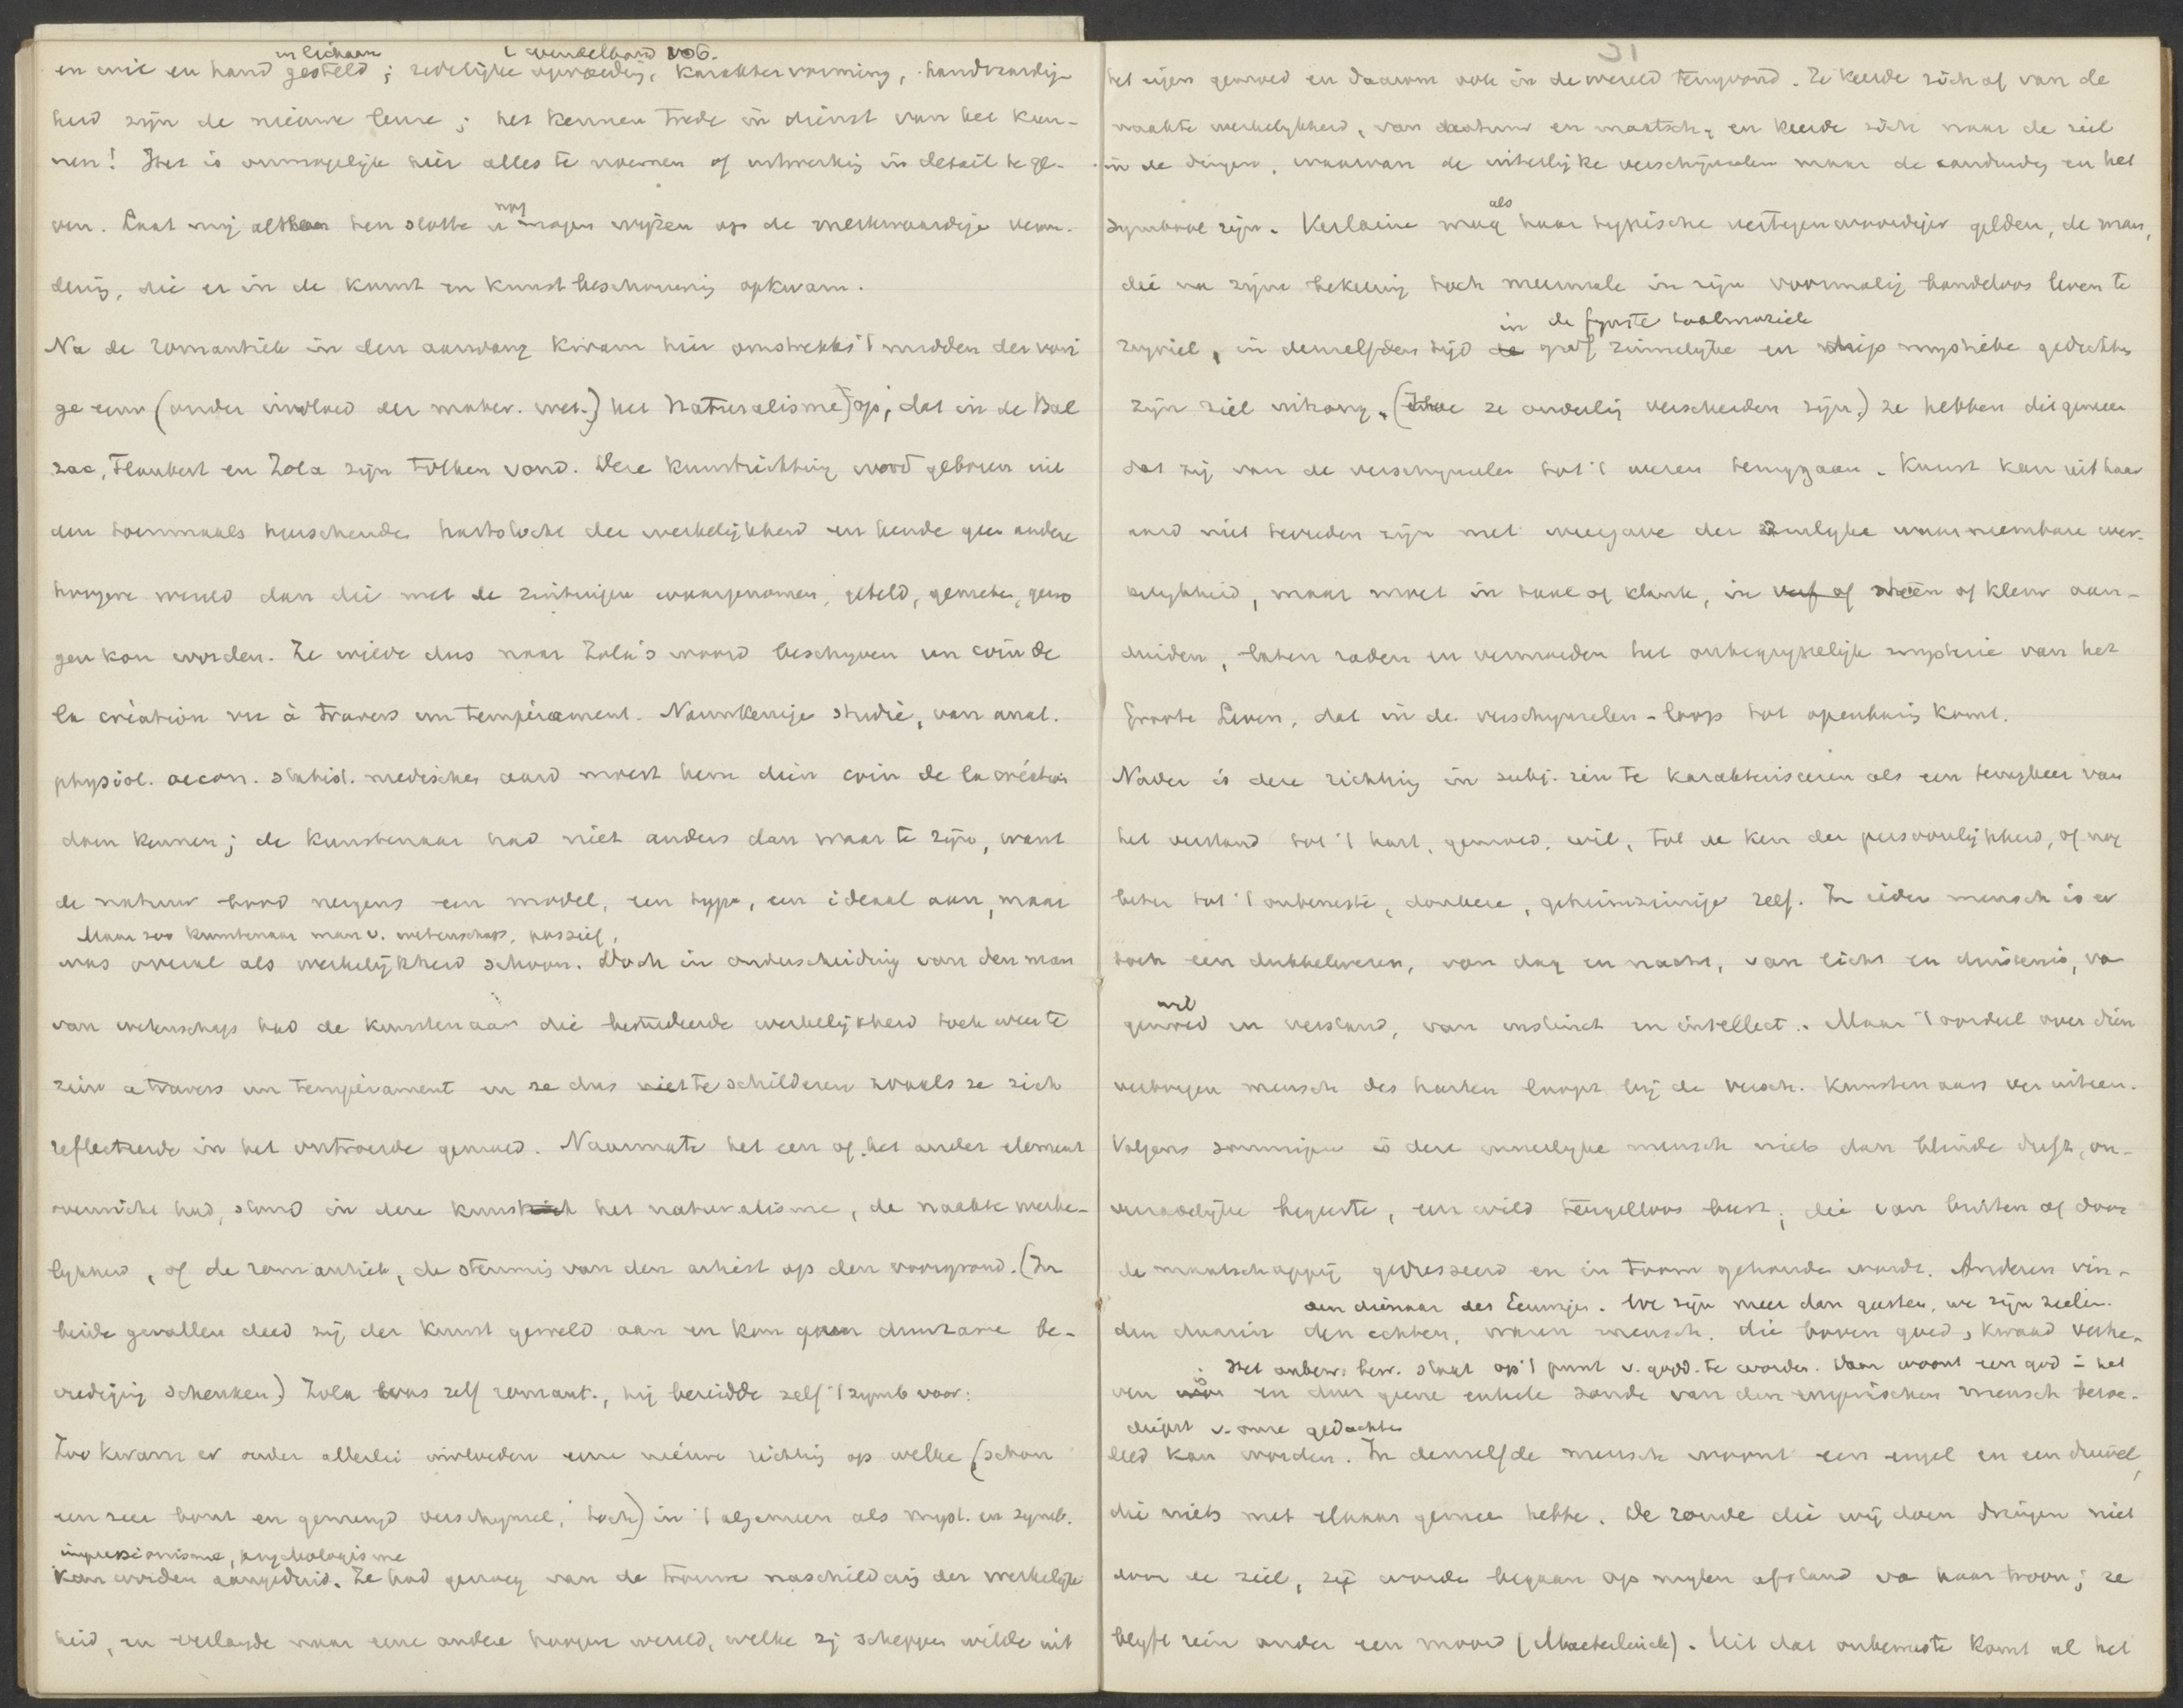 in lichaam
en wil en hand gesteld; zedelijke opvoeding, karaktervorming, handvaardig-
heid zijn de nieuwe leuze; het kennen trede in dienst van het kun-
nen! Het is onmogelijk hier alles te noemen of uitwerking in detail te ge-
nog
ven. Laat mij ten slotte u mogen wijzen op de merkwaardige veran-
dering, die er in de kunst en kunstbeschouwing opkwam.
Na de romantiek in den aanvang kwam hier omstreeks 't midden der vori
ge eeuw (onder invloed der mater. wet.) het Naturalisme op, dat in de Bal
zac, Flaubert en Zola zijn tolken vond. Deze kunstrichting werd geboren uit
den toenmaals heerschenden hartstocht der werkelijkheid en kende geen andere
hoogere wereld dan die met de zintuigen waargenomen, geteld, gemeten, gewo
gen kon worden. Ze wilde dus naar Zola's woord beschrijven un coin de
la création vu à travers un tempérament. Nauwkeurige studie, van anat.
physiol. oecon. statist. medischen aard moest hem dien coin de la création
doen kennen; de kunstenaar had niet anders dan waar te zijn, want
de natuur bood nergens een model, een type, een ideaal aan, maar
Maar zoo kunstenaar man v. wetenschap, passief,
was overal als werkelijkheid schoon. Doch in onderscheiding van den man
van wetenschap had de kunstenaar die bestudeerde werkelijkheid toch weer te
zien a travers un tempérament en ze dus niet te schilderen zooals ze zich
reflecteerde in het ontroerde gemoed. Naarmate het een of het ander element
overwicht had, stond in deze kunst het naturalisme, de naakte werke-
lijkheid, of de romantiek, de stemmig van den artist op den voorgrond. (In
beide gevallen deed zij der kunst geweld aan en kon geen duurzame be-
vrediging schenken.) Zola was zelf romant., hij bereidde zelf 't symb voor:
Zoo kwam er onder allerlei invloeden eene nieuwe richting op welke (schoon
een zeer bont en gemengd verschijnsel, toch) in 't algemeen als myst. en symb.
impressionisme, psychologisme
kan worden aangeduid. Ze had genoeg van de trouwe naschildering der werkelijk-
heid, en verlangde naar eene andere hoogere wereld, welke zij scheppen wilde uit
31
het eigen gemoed en daarom ook in de wereld terugvond. Ze keerde zich af van de
naakte werkelijkheid, van natuur en maatsch., en keerde zich naar de ziel
in de dingen, waarvan de uiterlijke verschijnselen maar de aanduiding en het
als
symbool zijn. Verlaine mag haar typische vertegenwoordiger gelden, de man,
die na zijne bekeering toch meermale in zijn voormalig bandeloos leven te
in de fijnste taalmuziek
rugviel, in denzelfden tijd grof zinnelijke en diep mystieke gedichten
zijn ziel uitzong. (Hoe ze onderling verscheiden zijn,) ze hebben dit gemeen
dat zij van de verschijnselen tot 't wezen teruggaan. Kunst kan uit haar
aard niet tevreden zijn met weergave der zinlijke waarneembare wer-
kelijkheid, maar moet in taal of klank, in verf of steen of kleur aan-
duiden, laten raden en vermoeden het onbegrijpelijk mysterie van het
Groote Leven, dat in de verschijnselen-loop tot openbaring komt.
Nader is deze richting in subj. zin te karakteriseeren als een terugkeer van
het verstand tot 't hart, gemoed, wil, tot de kern der persoonlijkheid, of nog
beter tot 't onbewuste, donkere, geheimzinnige zelf. In ieder mensch is er
toch een dubbelwezen, van dag en nacht, van licht en duisternis, va
wil
gemoed en verstand, van instinct en intellect. Maar 't oordeel over dien
verborgen mensch des harten loopt bij de versch. kunstenaars ver uiteen.
Volgens sommigen is deze innerlijke mensch niets dan blinde drift, on-
verzadelijke begeerte, een wild teugelloos beest, die van buiten af door
de maatschappij gedresseerd en in toom gehouden wordt. Anderen vin-
den dienaar des Eeuwigen. We zijn meer dan geesten, we zijn zielen.
den daarin den echten, waren mensch, die boven goed, kwaad verhe-
Het onbew. bew. staat op 't punt v. godd. te worden. Daar woont een god in het
ven is en door geene enkele zonde van den empirischen mensch bezoe-
diepst v. onze gedachte
deld kan worden. In denzelfde mensch woont een engel en een duivel,
die niets met elkaar gemee hebben. De zonde die wij doen dringen niet
door de ziel, zij worde begaan op mylen afstand va haar troon; ze
blijft rein onder een moord (Maeterlinck). Uit dat onbewuste komt al het